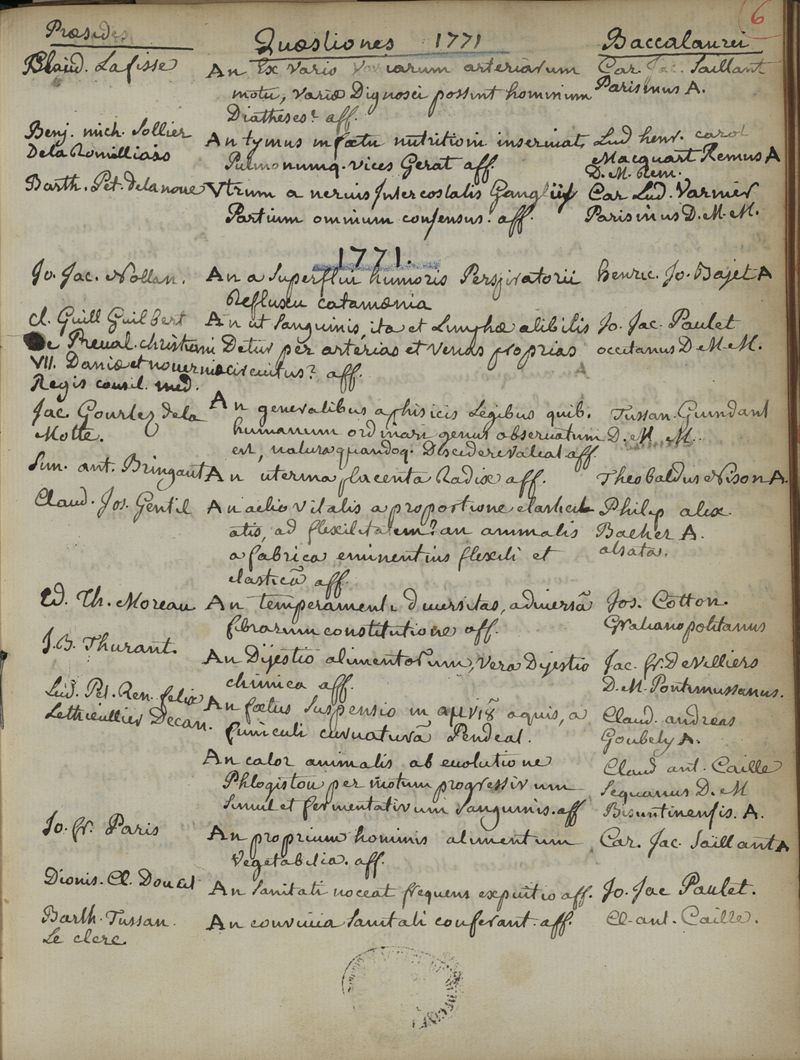 6
Præsides Quæstiones 1771 Baccalaurei
Claud. Lafisse An Ex Varis Variarum arteriarum Car. Jac. Saillant
motu, Variæ Dignosci possint hominum Parisinus A.
Diatheses? aff.
Benj. mich. Sollier An tymus in fœtu nutritioni inserviat, Lud henr. carol
De la Romilliais Pulmonumq. vices Gerat aff. Macquart Remus A
D. M. Rem.
Barth. Pet. delanoue Vtrum a nervis Intercostalis Gangliis Car Lud. Varnier
Partium omnium consensus. aff. Parisinus D. M. M.
1771.
Jo. Jac. Nollan. An a Superflui humoris Perspiratorii henric. Jo. Bajet A
Refluxu catamænia
cl. Guill Guilbert An ut Sanguinis, ita et Lymphæ alibilis Jo. Jac. Paulet
de Preval. christiani Detur per arterias et Venas proprias occitanus D. M. M.
VII. Daniæ et norverniæ circuitus? aff. A
Regis consil. med.
Jac. Gourlez dela An generalibus a phisicis Legibus quib. Tussan. Guindant
Motte. humanum ordinari genus observatum D. M. M.
est, natura quandoq. Discedere valeat aff.
Sim. ant. Bringaut An uterina placenta Radix aff. Theobaldus Nison A.
Claud. Jos. Gentil An actio Vitalis a proportione elastici- Philip alex.
atis, ad flexilitatem? an animalis Bacher A.
a fabrica eminentius flexili et alsata.
elasticâ aff.
Ed. Th. Moreau An temperamenti diversitas, a diversâ Jos. Cotton.
fibrarum constitutione aff. Gratianopolitanus
J. B. Thurant. An Dijestio alimentorum, Vera Dijestio Jac. fr. De Villiers
chimica aff. D. M. Pontimussanus.
Lud. Pet. Ren. felix An fœtus Suspensio in aquis, a Claud. andreas
Lethieullier Decan. funiculi curvaturâ Pendeat. Goubely A.
An calor animalis ab evolutione Claud ant. Caille
Phlogistou per motum progressivum Sequanus D. M
Simul et fermentativum Sanguinis. aff Bisuntinensis. A.
Jo. fr. Paris An proprium hominis alimentum Car. Jac. Saillant A
Vegetabilia. aff.
Dionis. Cl. Doucet An Sanitati noceat frequens exputio aff. Jo. Jac Paulet.
Barth. Tussan. An convivia Sanitati conferant. aff. Cl. ant. Caille.
Le clerc